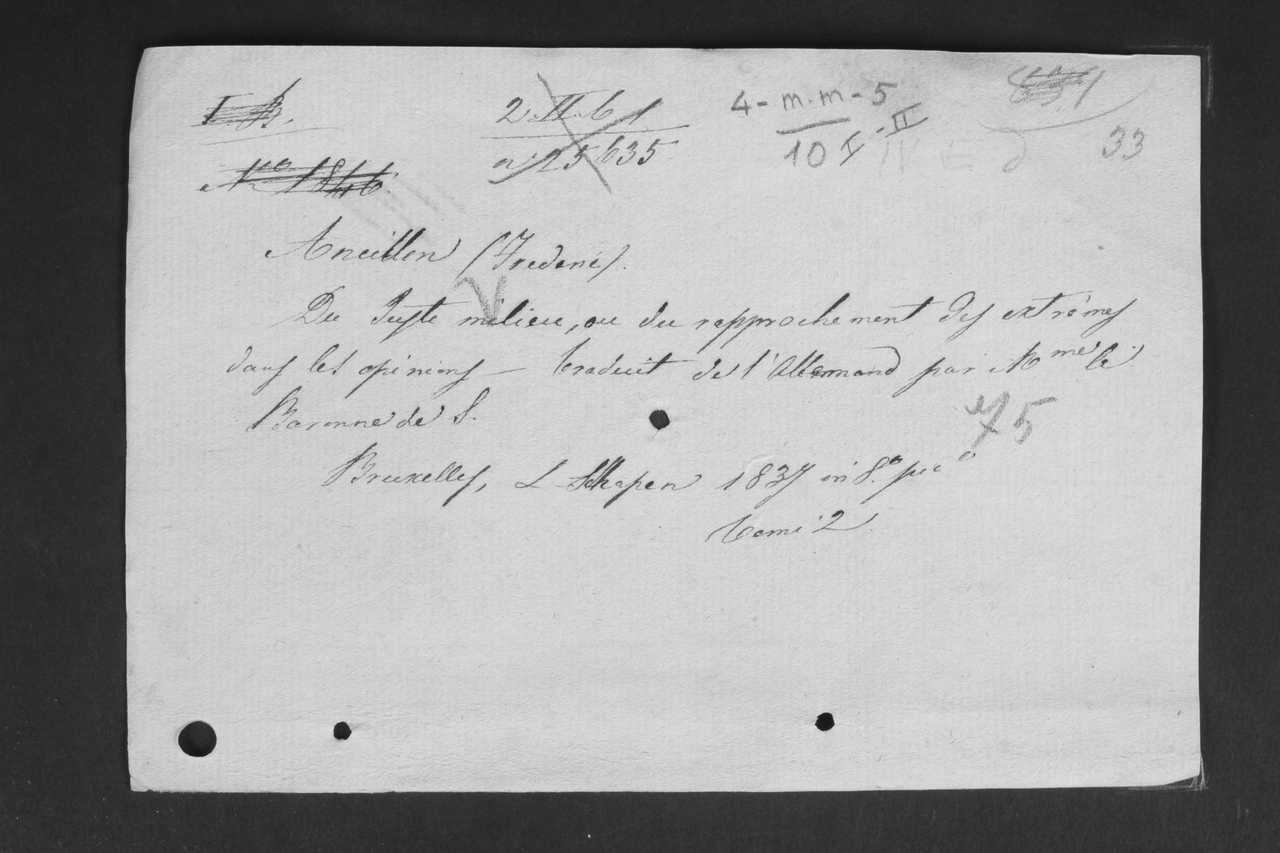 I B.
2. II. 6 1
4 - m.m - 5
10 I - II
33
N.ro 1846.
a 25635
Ancillon (Frederic).
Du Juste milieu, ou du rapprochement des extrêmes
dans les opinions — traduit de l'Allemand par Mme la
Baronne de S.
75
Bruxelles, L. Hapen 1837 in 8.º pico
tome 2